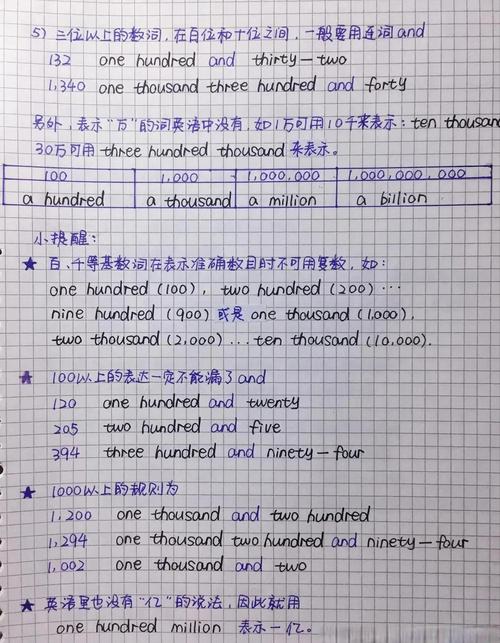 5) 三位以上的数词,在百位和十位之间,一般要用连词and
132 one hundred and thirty-two
1,340 one thousand three hundred and forty
另外,表示“万”的词英语中没有,如1万可用10千来表示:ten thousand
30万可用three hundred thousand来表示。
100 1,000 1,000,000 1,000,000,000
a hundred a thousand a million a billion
小提醒:
★ 百、千等基数词在表示准确数目时不可用复数,如:
one hundred (100), two hundred (200)...
nine hundred (900) 或是 one thousand (1,000),
two thousand (2,000)...ten thousand (10,000).
★ 100以上的表达一定不能漏了and
120 one hundred and twenty
205 two hundred and five
394 three hundred and ninety-four
★ 1000以上的规则为
1,200 one thousand and two hundred
1,294 one thousand two hundred and ninety-four
1,002 one thousand and two
★ 英语里也没有“亿”的说法,因此就用
one hundred million 表示一亿。